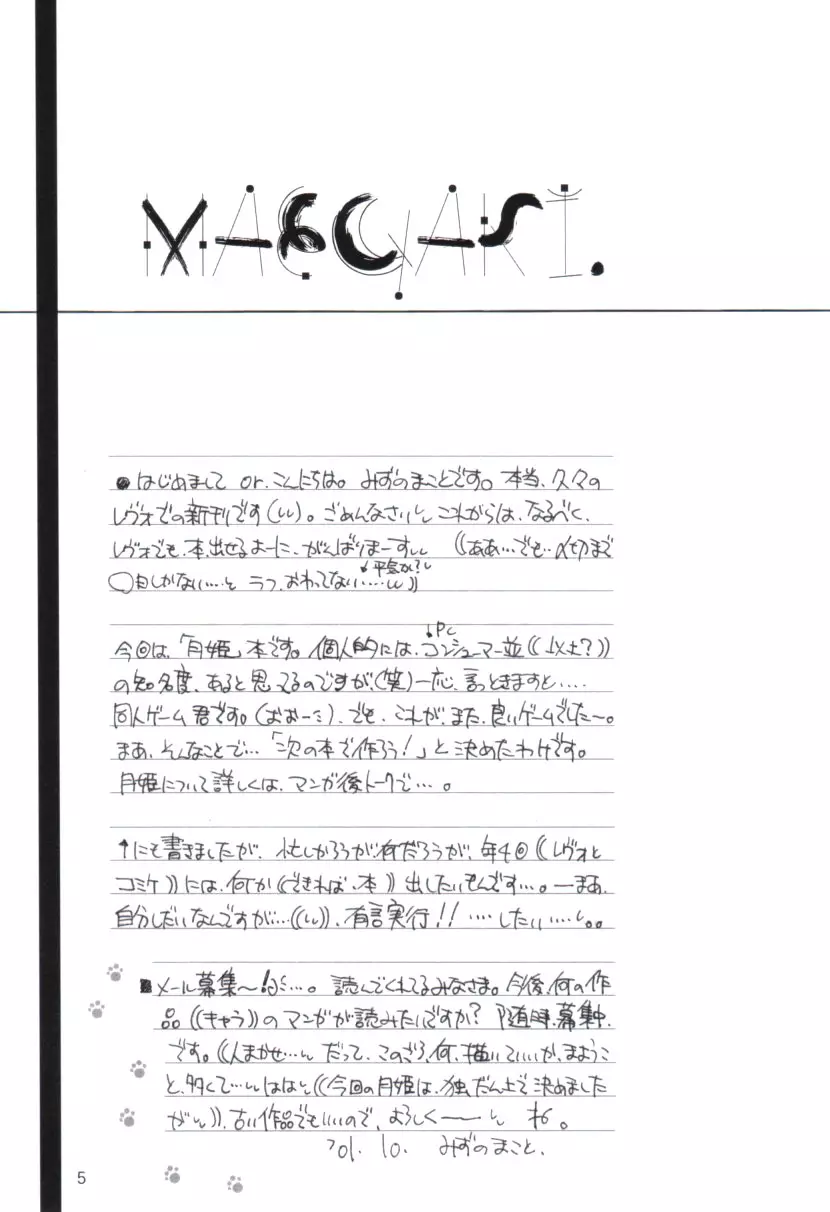 MAEGAKI.
●はじめまして or.こんにちは。みずのまことです。本当、久々の
レヴォでの新刊です(しし)。ごめんなさいし これからは、なるべく、
レヴォでも、本、出せるよーに、がんばりまーすしし ((ああ…でも…〆切まで
↓平気か?し
〇日しかない…。と ラフ、おわってない……しし))
↓PC
今回は、「月姫」本です。個人的には、コンシューマー並((以上?))
の知名度、あると思ってるのですが(笑)一応、言っときますと….
同人ゲーム君です。(おおーミ)、でも、これが、また、良いゲームでした〜。
まあ、そんなことで…「次の本で作ろう!」と決めたわけです。
月姫について詳しくは、マンガ後トークで…。
↑にも書きましたが、忙しかろうが何だろうが、年4回((レヴォと
コミケ))には、何か((できれば、本))出したいもんです…。ーまあ、
自分しだいなんですが…((しし))、有言実行!! ….したい….し。。
■メール募集〜!…。読んでくれてるみなさま。今後、何の作
品((キャラ))のマンガが読みたいですか? 随時、募集中、
です。((人まかせ…し だって、このごろ、何、描いていいか、まようこ
と、多くて…しし ははし((今回の月姫は、独だん上で決めました
がし)).古い作品でもいいので、よろしくーーし ね。
'01.10. みずのまこと.
5